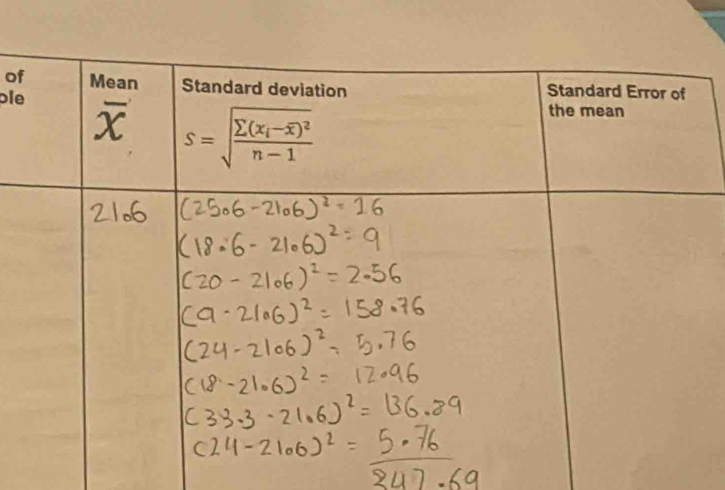 of Mean Standard deviation Standard Error of
ple x̄ s = √(Σ(xᵢ-x̄)²/(n-1)) the mean
21.6 (25.6-21.6)² = 16
(18.6-21.6)² = 9
(20-21.6)² = 2.56
(9-21.6)² = 158.76
(24-21.6)² = 5.76
(18-21.6)² = 12.96
(33.3-21.6)² = 136.89
(24-21.6)² = 5.76
347.69